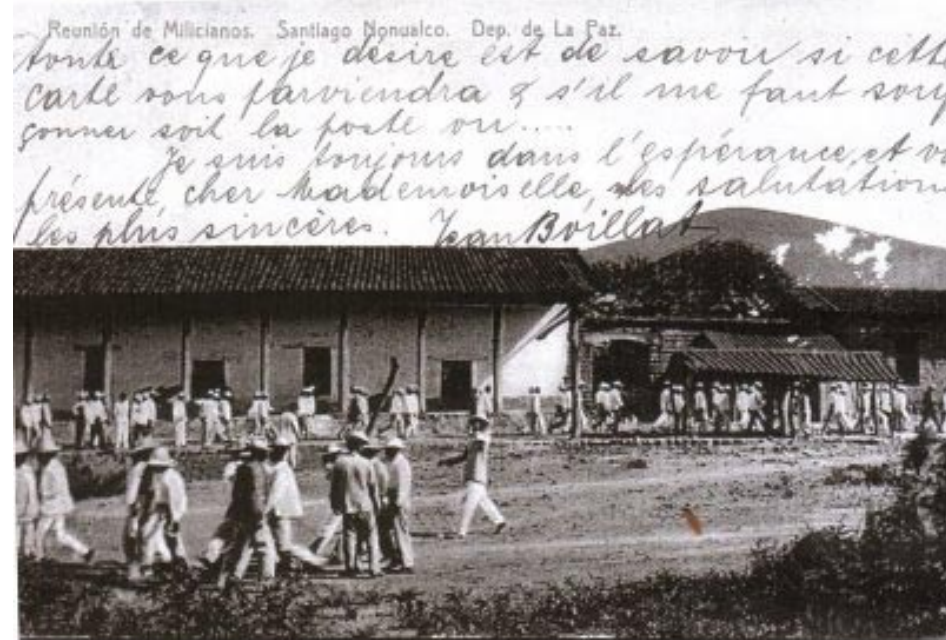 Reunión de Milicianos. Santiago Nonualco. Dep. de La Paz.
tonte ce que je désire est de savoir si cette
carte vous parviendra & s'il me faut soup
çonner soit la poste ou....
Je suis toujours dans l'espérance, et vo
présente, cher Mademoiselle, mes salutation
les plus sincères. Jean Boillat